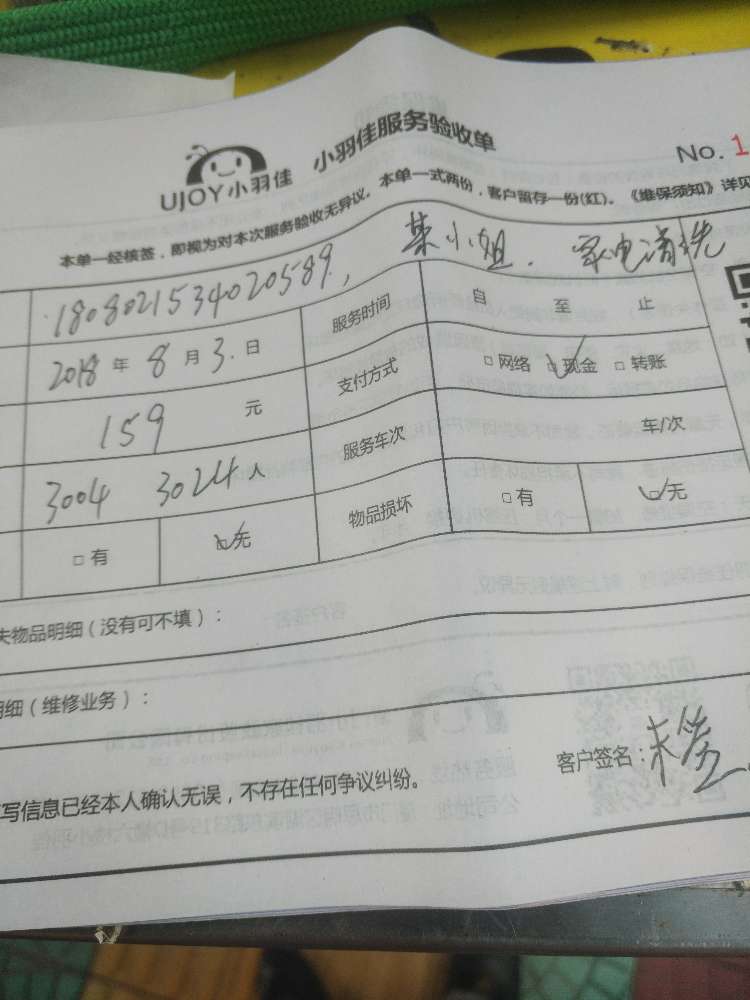 UJOY小羽佳 小羽佳服务验收单
No. 1
本单一经核签，即视为对本次服务验收无异议。本单一式两份，客户留存一份(红)。《维保须知》详见
1808021534020589, 某小姐. 家电清洗
2018 年 8 月 3. 日 服务时间 自 至 止
159 元 支付方式 □网络 □现金 □转账
3004 3024 人 服务车次 车/次
□有 □无 物品损坏 □有 □无
失物品明细（没有可不填）：
明细（维修业务）：
客户签名：未签
写信息已经本人确认无误，不存在任何争议纠纷。